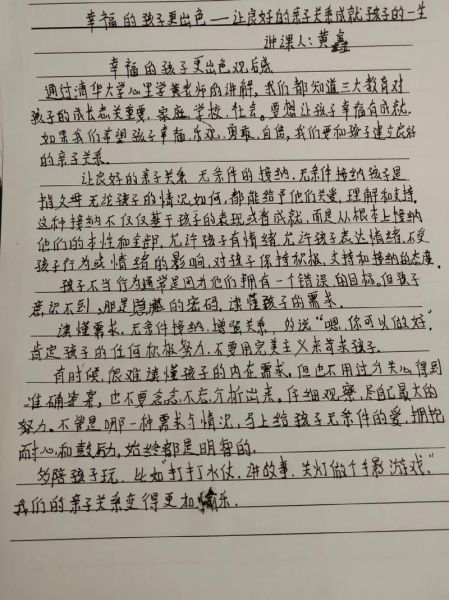 幸福的孩子更出色——让良好的亲子关系成就孩子的一生
讲课人:黄鑫
幸福的孩子更出色观后感
通过清华大学心里学黄老师的讲解,我们都知道三大教育对
孩子的成长志关重要,家庭,学校,社会。要想让孩子幸福有成就.
如果我们希望孩子幸福、乐观、勇敢、自信,我们要和孩子建立良好
的亲子关系.
让良好的亲子关系,无条件的接纳,无条件接纳孩子是
指父母无论孩子的情况如何,都能给予他们关爱,理解和支持.
这种接纳不仅仅基于孩子的表现或者成就,而是从根本上接纳
他们的本性和全部,允许孩子有情绪,允许孩子表达情绪,不受
孩子行为或情绪的影响,对孩子保持积极,支持和接纳的态度.
孩子不当行为通常是因为他们拥有一个错误的目标,但孩子
意识不到,那是隐藏的密码,读懂孩子的需求.
读懂需求,无条件接纳,增强关系,的说“嗯,你可以做好”,
肯定孩子的任何积极努力,不要用完美主义来苛求孩子.
有时候,很难读懂孩子的内在需求,但也不用过分关心得到
准确答案,也不要急急不忘分析出来,仔细观察,尽自己最大的
努力。不管是哪一种需求与情况,马上给孩子无条件的爱,拥抱
耐心和鼓励,始终都是明智的.
多陪孩子玩,比如“打打水仗,讲故事,关灯做个手影游戏,”
我们的亲子关系变得更加愉乐.